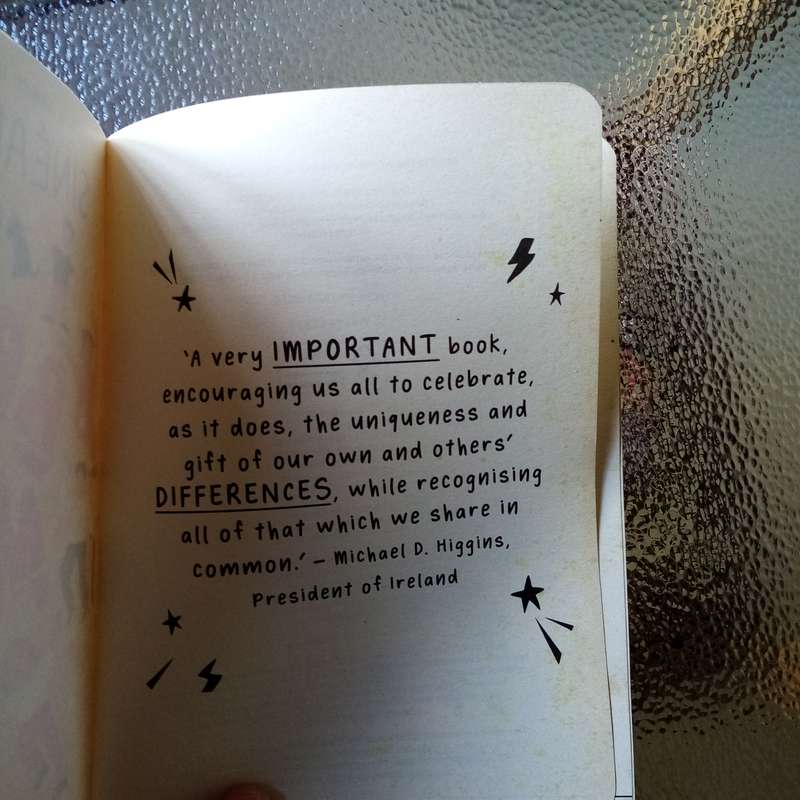 ‘A very IMPORTANT book,
encouraging us all to celebrate,
as it does, the uniqueness and
gift of our own and others’
DIFFERENCES, while recognising
all of that which we share in
common.’ – Michael D. Higgins,
President of Ireland